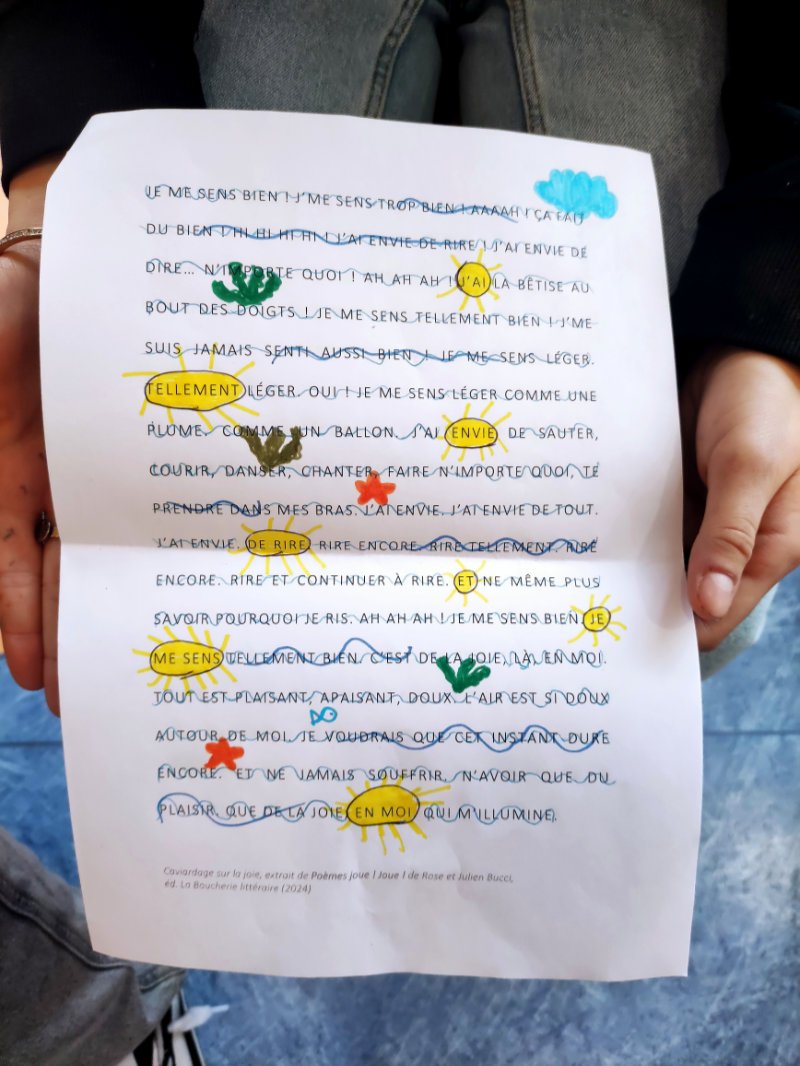 JE ME SENS BIEN ! J'ME SENS TROP BIEN ! AAAAH ! ÇA FAIT
DU BIEN ! HI HI HI HI ! J'AI ENVIE DE RIRE ! J'AI ENVIE DE
DIRE... N'IMPORTE QUOI ! AH AH AH ! J'AI LA BÊTISE AU
BOUT DES DOIGTS ! JE ME SENS TELLEMENT BIEN ! J'ME
SUIS JAMAIS SENTI AUSSI BIEN ! JE ME SENS LÉGER.
TELLEMENT LÉGER. OUI ! JE ME SENS LÉGER COMME UNE
PLUME. COMME UN BALLON. J'AI ENVIE DE SAUTER,
COURIR, DANSER, CHANTER, FAIRE N'IMPORTE QUOI, TE
PRENDRE DANS MES BRAS. J'AI ENVIE. J'AI ENVIE DE TOUT.
J'AI ENVIE. DE RIRE. RIRE ENCORE. RIRE TELLEMENT. RIRE
ENCORE. RIRE ET CONTINUER À RIRE. ET NE MÊME PLUS
SAVOIR POURQUOI JE RIS. AH AH AH ! JE ME SENS BIEN. JE
ME SENS TELLEMENT BIEN. C'EST DE LA JOIE, LÀ, EN MOI.
TOUT EST PLAISANT, APAISANT, DOUX. L'AIR EST SI DOUX
AUTOUR DE MOI. JE VOUDRAIS QUE CET INSTANT DURE
ENCORE. ET NE JAMAIS SOUFFRIR. N'AVOIR QUE DU
PLAISIR. QUE DE LA JOIE EN MOI QUI M'ILLUMINE.
Caviardage sur la joie, extrait de Poèmes joue ! Joue ! de Rose et Julien Bucci,
éd. La Boucherie littéraire (2024)